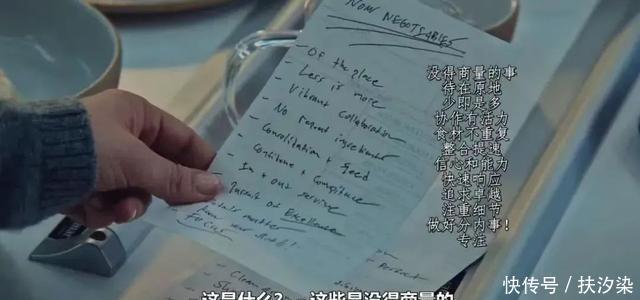 NON NEGOTIABLES
- Of the place
- Less is more
- Vibrant Collaboration
- No repeat ingredients
- Consolidation + Speed
- Confidence + Competence
- In + out service
- Pursuit of Excellence
- Details matter
know your shit!
FOCUS
没得商量的事
待在原地
少即是多
协作有活力
食材不重复
整合提速
信心和能力
快速响应
追求卓越
注重细节
做好分内事!
专注
这是什么? 这些是没得商量的
快传号 / 扶汐染